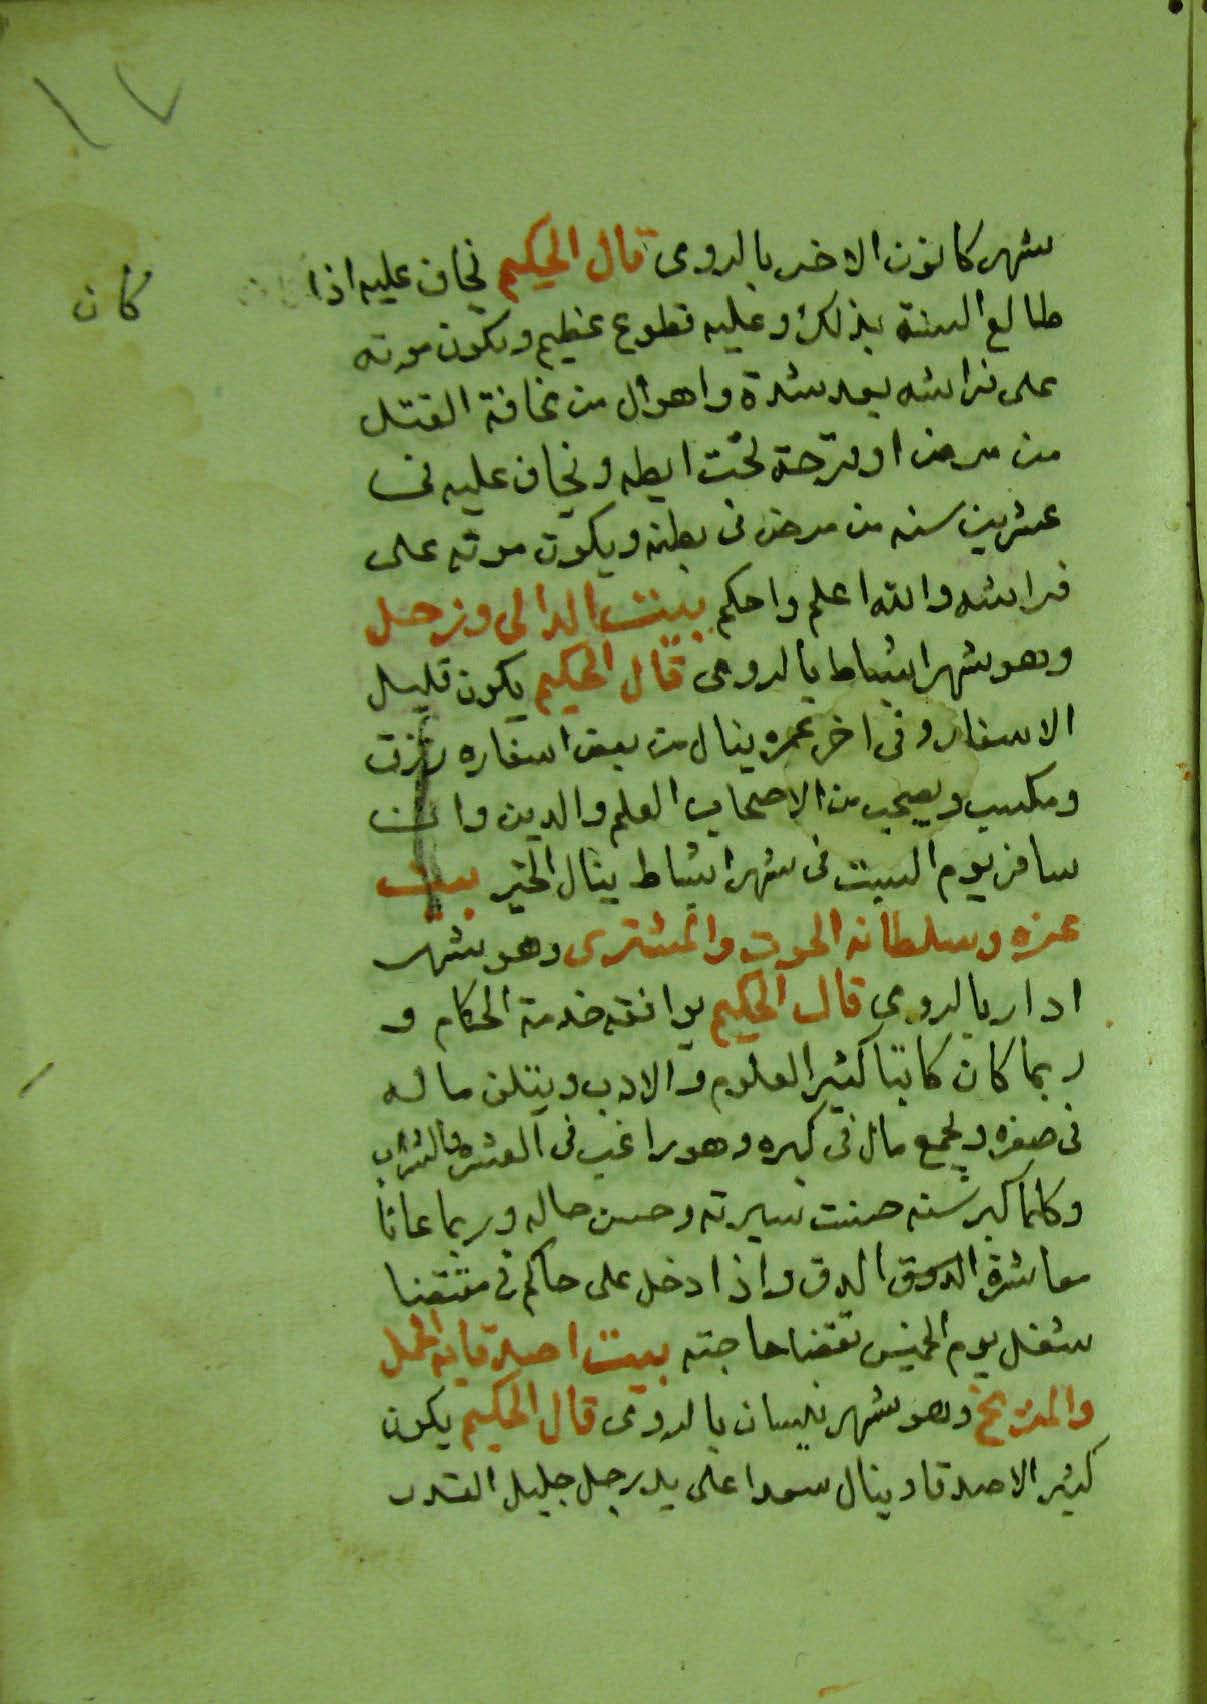 ١٧
شهر كانون الاخر بالرومى قال الحكيم يخاف عليه اذا كان
طالع السنة بذلك وعليه قطوع عظيم ويكون موته
على فراشه بعد شدة واهوال من مخافة القتل
من مرض او قرحة تحت ابطه ويخاف عليه فى
عشرين سنه من مرض فى بطنه ويكون موته على
فراشه والله اعلم واحكم بيت الدالى وزحل
وهو شهر اشباط بالرومى قال الحكيم يكون قليل
الاسفار وفى اخر عمره ينال من بعض اسفاره رزق
ومكسب ويصحب من الاصحاب العلم والدين وان
سافر يوم السبت فى شهر اشباط ينال الخير بيت
عزه وسلطانه الحوت والمشترى وهو شهر
ادار بالرومى قال الحكيم يوافقه خدمة الحكام و
ربما كان كاتبا كثير العلوم والادب ويتلف ماله
فى صغره ويجمع مال فى كبره وهو راغب فى العشره والشراب
وكلما كبر سنه حسنت سيرته وحسن حاله وربما عانا
معاشرة الدوق واذا دخل على حاكم فى
شغل يوم الخميس تقضا حاجته بيت اصدقايه الحمل
والمريخ وهو شهر نيسان بالرومى قال الحكيم يكون
كثير الاصدقا وينال سعدا على يد رجل جليل القدر